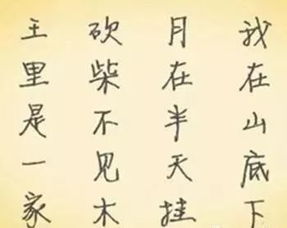 我在山底下
月在半天挂
砍柴不见木
王里是一家